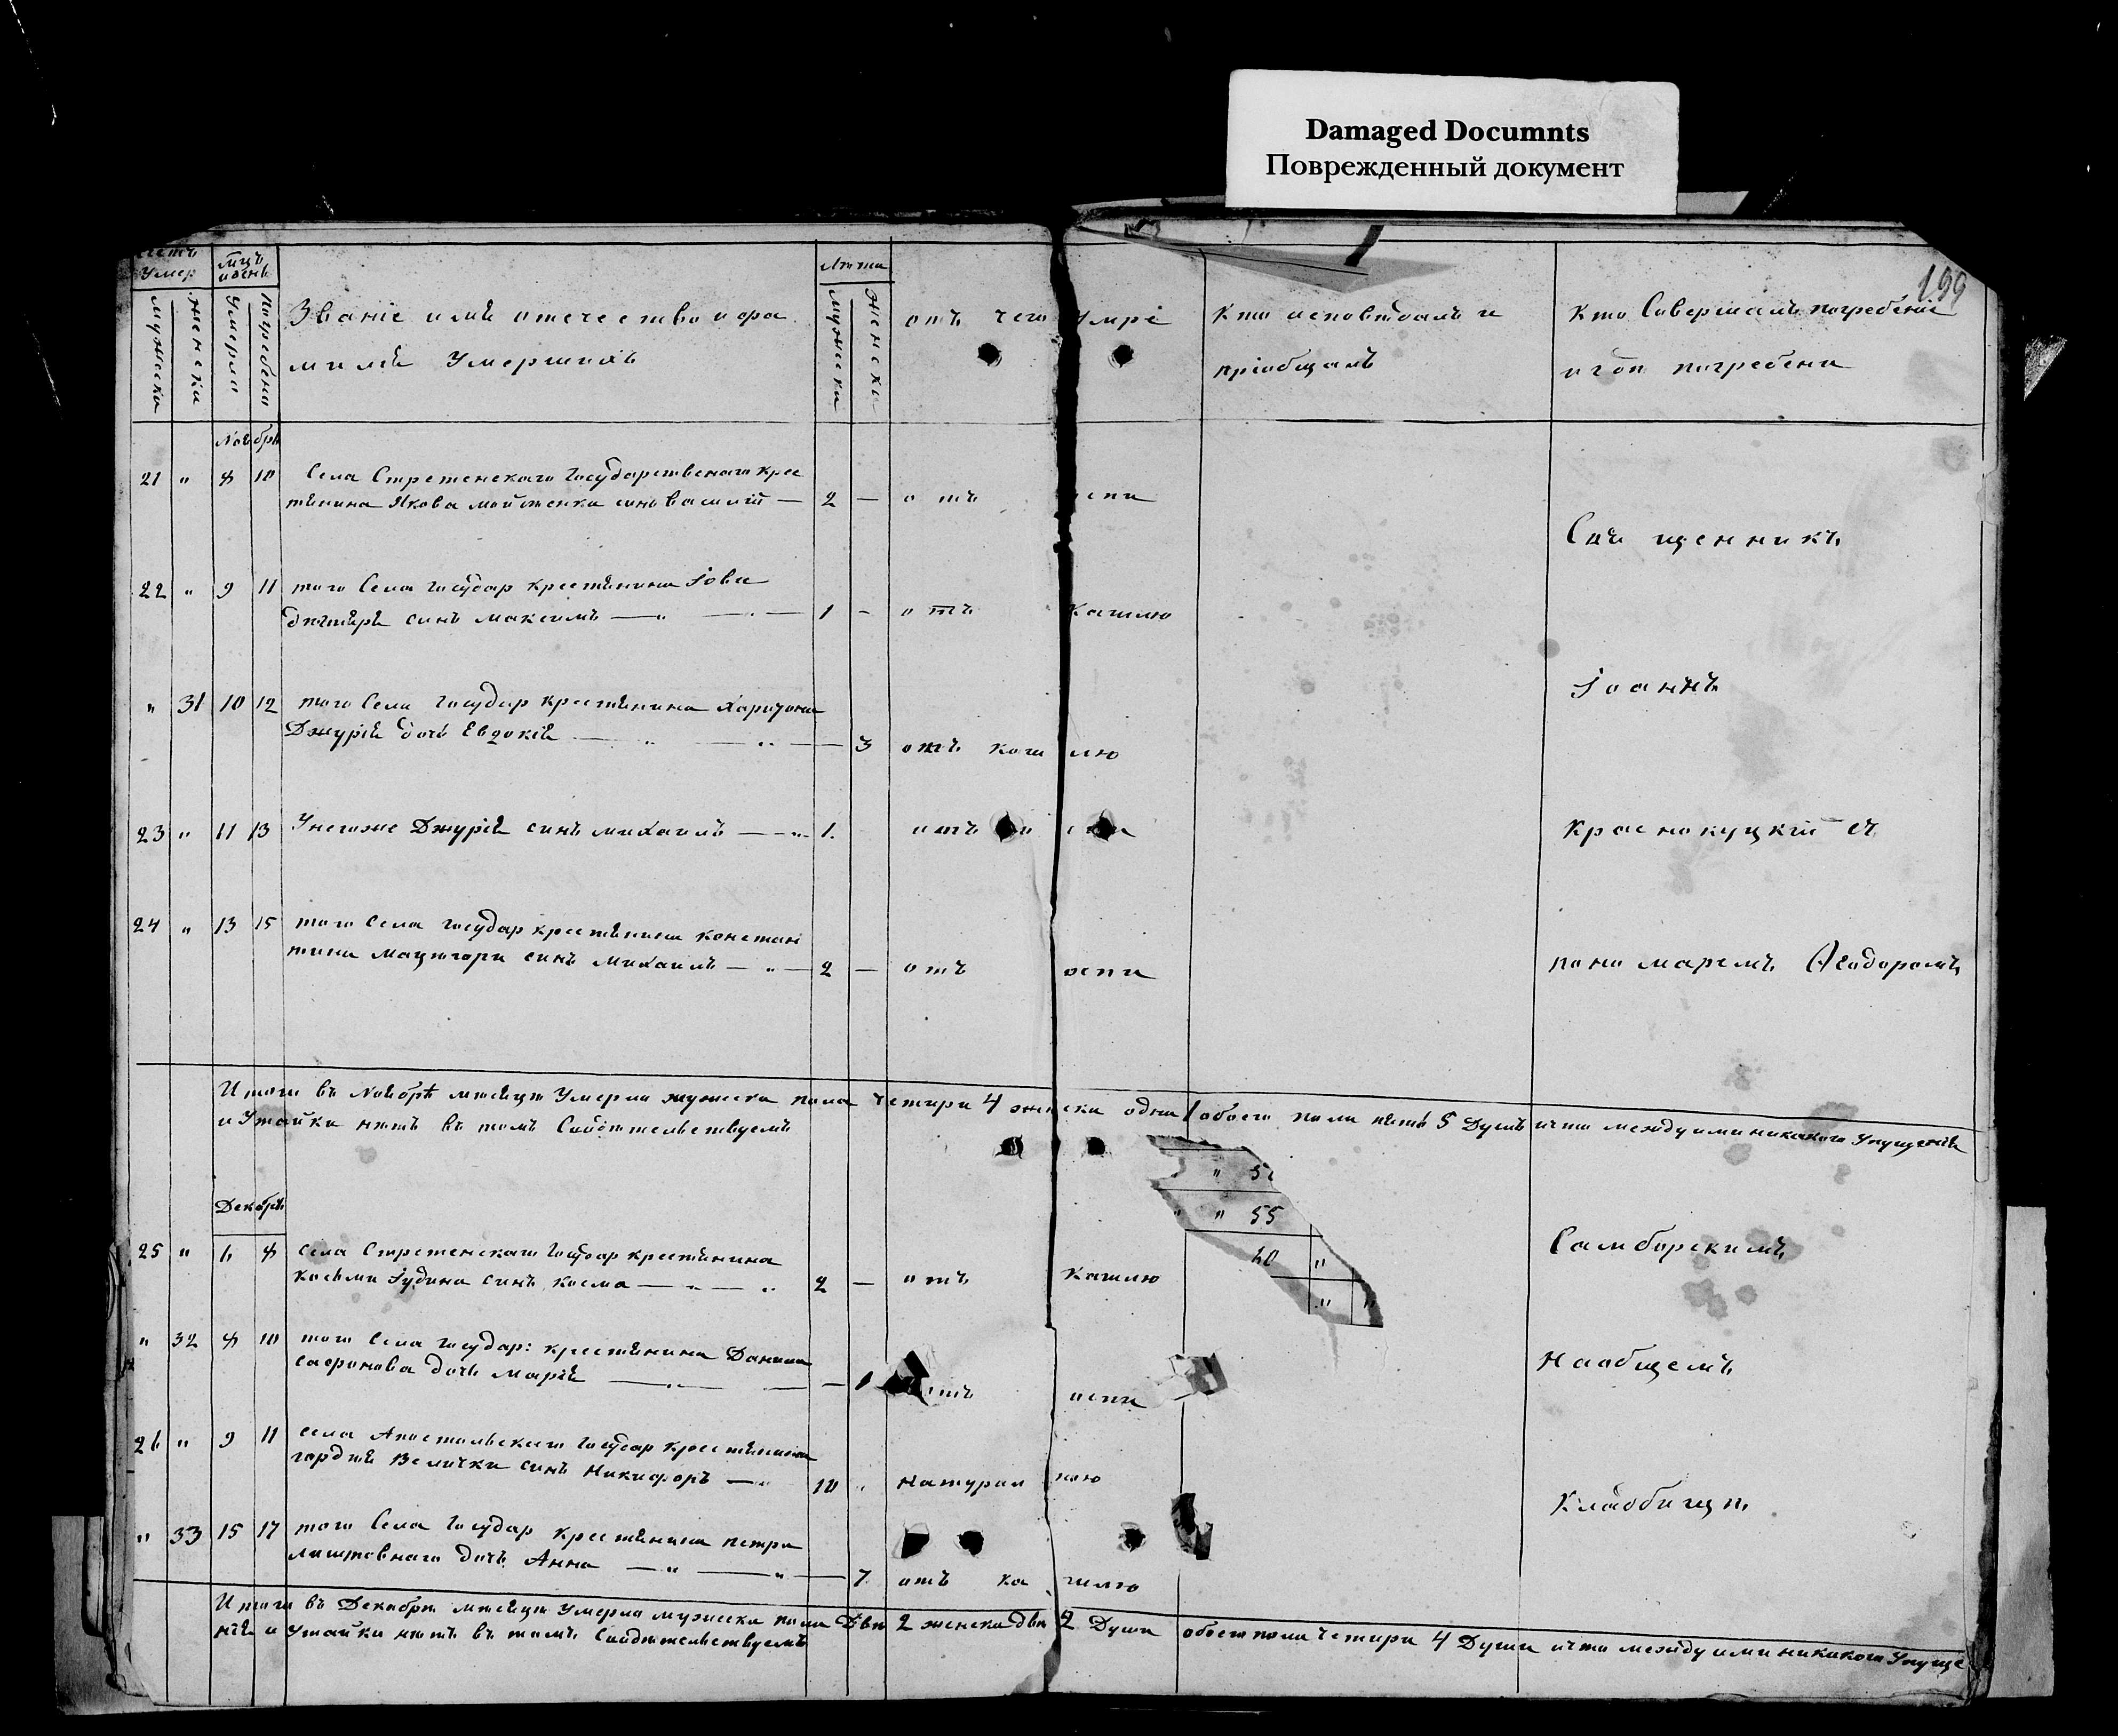 Damaged Documnts
Поврежденный документ
199
Умер
мужеска
женска
умерла
Погребена
Званіе имя отечество и фа
милія Умершихъ
Лѣта
мужеска
женска
отъ чего Умре
Кто исповѣдалъ и
пріобщалъ
Кто Совершалъ погребеніе
и гдѣ погребени
Ноября
21 " 8 10 Села Стретенскаго Государственаго крес
тянина Якова мойсженка синъ василій — 2 — отъ оспи
Свя щенникъ
22 " 9 11 того Села государ крестянина Іови
дегтяря синъ максимъ — " — 1 - отъ Кашлю
Іоаннъ
" 31 10 12 того Села государ крестянина Харитона
Джурія дочь Евдокія — " — " — 3 отъ каш лю
23 " 11 13 Унегоже Джурія синъ михаилъ — " 1. отъ
краснокуцкій съ
24 " 13 15 того Села государ крестянина констан
тина мацюгори синъ михаилъ — " — 2 — отъ оспи
пономаремъ Ѳеодоромъ
Итого въ Ноябрѣ мѣсяцѣ Умерло мужеска пола четири 4 женска одна 1 обоего пола пять 5 Душъ ичто между ими никакого Упущенія
и Утайки нѣтъ въ томъ Свидѣтельствуемъ
" 5
" " 55
40 "
" "
Декабря
25 " 6 8 Села Стретенскаго Государ крестянина
косьми Гудина синъ косма — " — " 2 — отъ Кашлю
Самборскимъ
" 32 8 10 того Села государ: крестянина Данила
сафонова дочь Марія — " — — 1 отъ оспи
Наобщемъ
26 " 9 11 села Апостольскаго государ крестянина
гордія Велички синъ Никифоръ — " 10 " натурал ною
Кладбищѣ
" 33 15 17 того Села Государ крестянина петра
лиштовнаго дочь Анна — " — " — 7. отъ ка шлю
Итого въ Декабрѣ мѣсяцѣ Умерло мужеска пола Двѣ 2 женска двѣ 2 Души обоего пола четири 4 Души ичто между ими никакого Упуще
нія и Утайки нѣтъ въ томъ Свидѣтельствуемъ